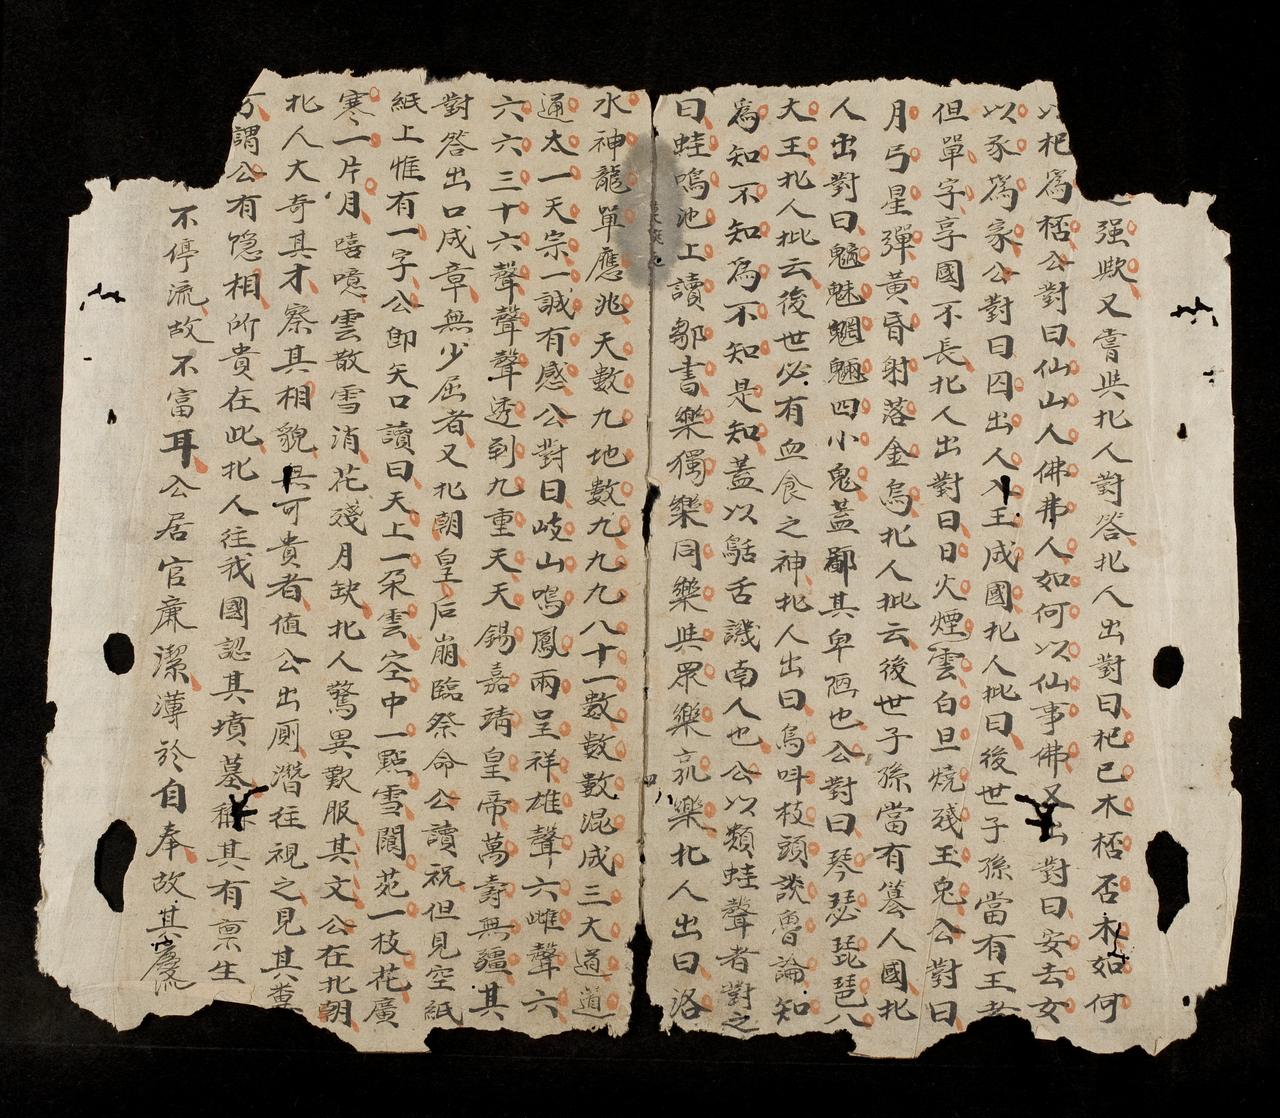 之強欤又嘗與北人對答北人出對曰杞已木桮否木如何
以杞為桮公對曰仙山人佛弗人如何以仙事佛又出對曰安去女
以豕為家公對曰囚出人入王成國北人批曰後世子孫當有王者
但單字享國不長北人出對曰日火煙雲白旦燒殘玉兔公對曰
月弓星彈黃昏射落金烏北人批云後世子孫當有篡人國北
人出對曰魑魅魍魎四小鬼蓋鄙其卑陋也公對曰琴瑟琵琶八
大王北人批云後世必有血食之神北人出曰烏呌枝頭談魯論知
為知不知為不知是知蓋以鴃舌譏南人也公以類蛙聲者對之
曰蛙鳴池上讀鄒書樂獨樂同樂與眾樂孰樂北人出曰洛
水神龜單應兆天數九地數九九九八十一數數數混成三大道道
通太一天宗一誠有感公對曰岐山鳴鳳兩呈祥雄聲六雌聲六
六六三十六聲聲聲透到九重天天錫嘉靖皇帝萬壽無疆其
對答出口成章無少屈者又北朝皇后崩臨祭命公讀祝但見空紙
紙上惟有一字公卽矢口讀曰天上一朶雲空中一點雪閬苑一枝花廣
寒一片月噫噫雲散雪消花殘月缺北人驚異歎服其文公在北朝
北人大奇其才察其相貌無可貴者值公出厠潛往視之見其糞
方謂公有隐相所貴在此北人往我國認其墳墓稱其有禀生
不停流故不富耳公居官廉潔薄於自奉故其慶流